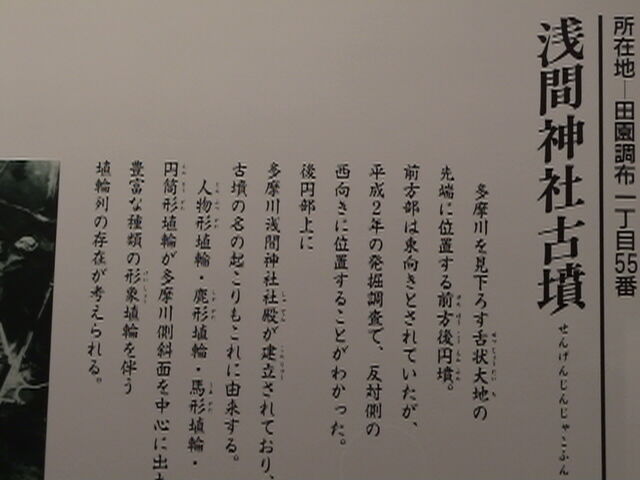 所在地―田園調布一丁目55番
浅間神社古墳
せんげんじんじゃこふん
多摩川を見下ろす舌状大地の
先端に位置する前方後円墳。
前方部は東向きとされていたが、
平成2年の発掘調査で、反対側の
西向きに位置することがわかった。
後円部上に
多摩川浅間神社社殿が建立されており、
古墳の名の起こりもこれに由来する。
人物形埴輪・鹿形埴輪・馬形埴輪・
円筒形埴輪が多摩川側斜面を中心に出土
豊富な種類の形象埴輪を伴う
埴輪列の存在が考えられる。